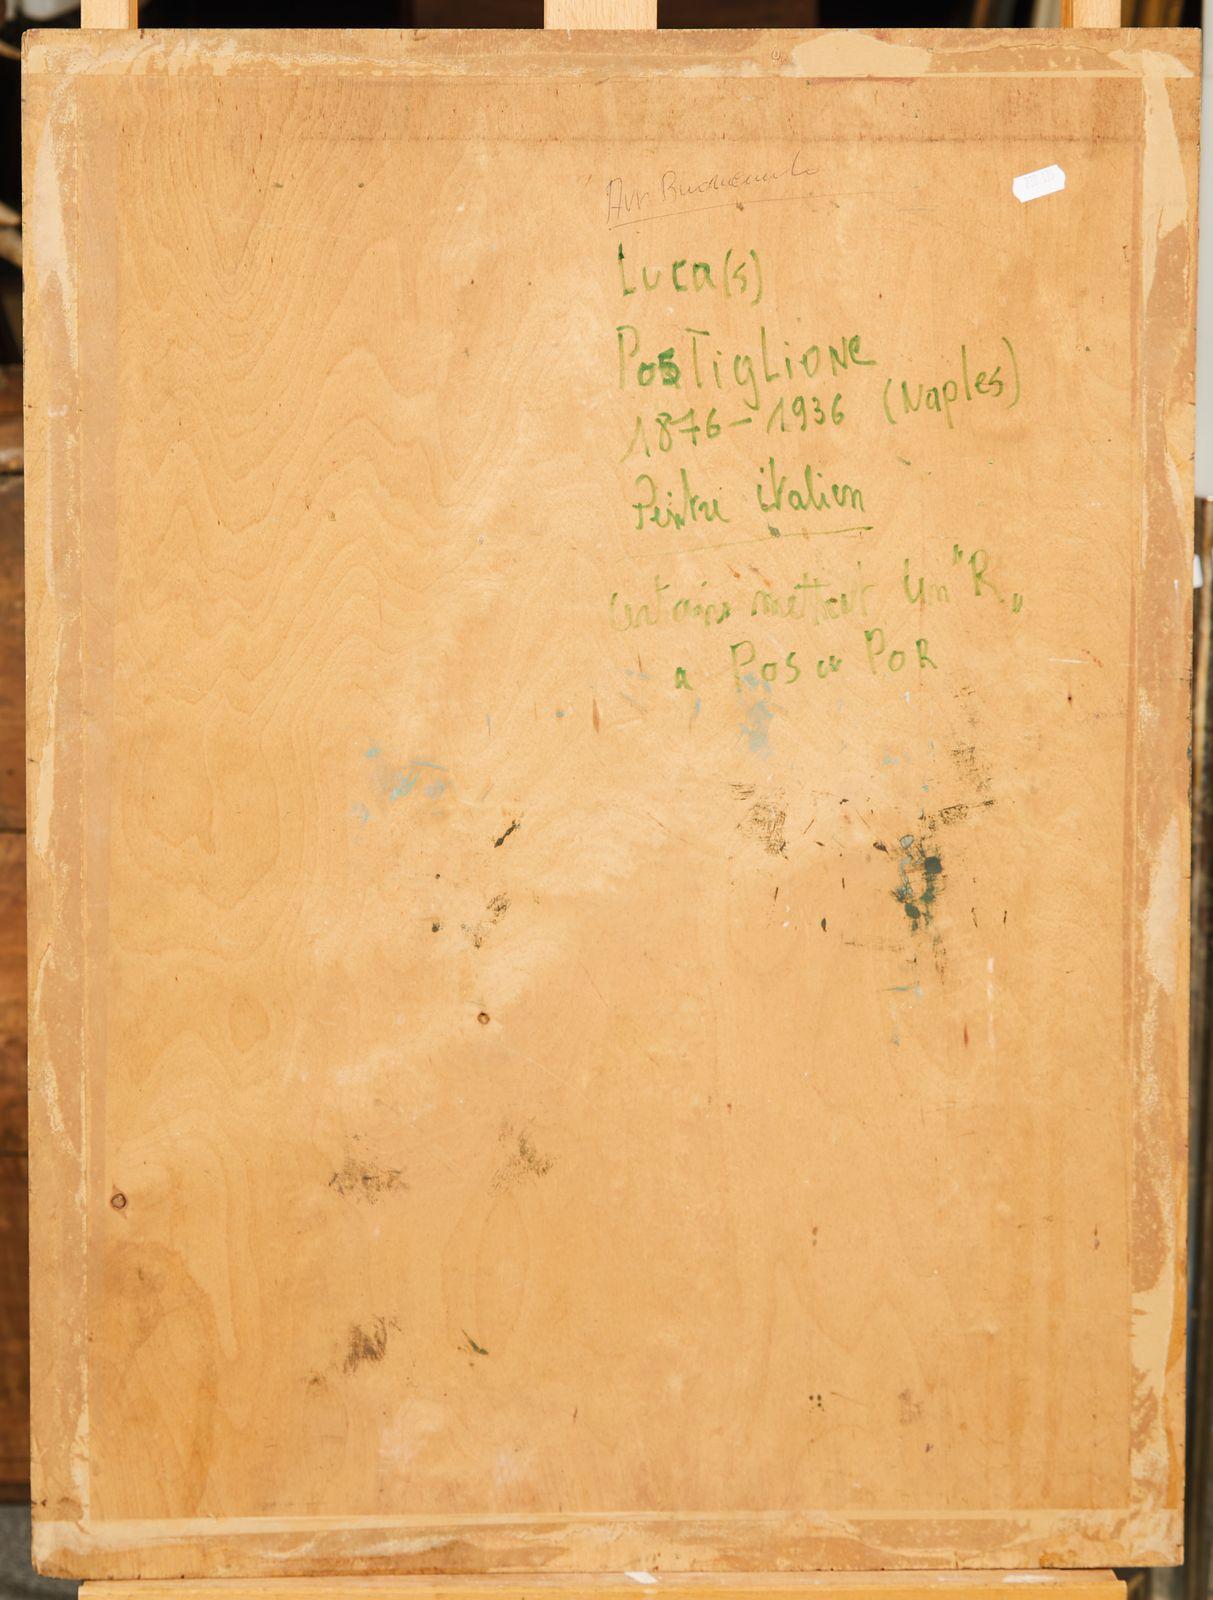 Luca(s)
PosTigLiONe
1876-1936 (Naples)
Peintre italien
certains mettent Un "R"
a Pos ou PoR